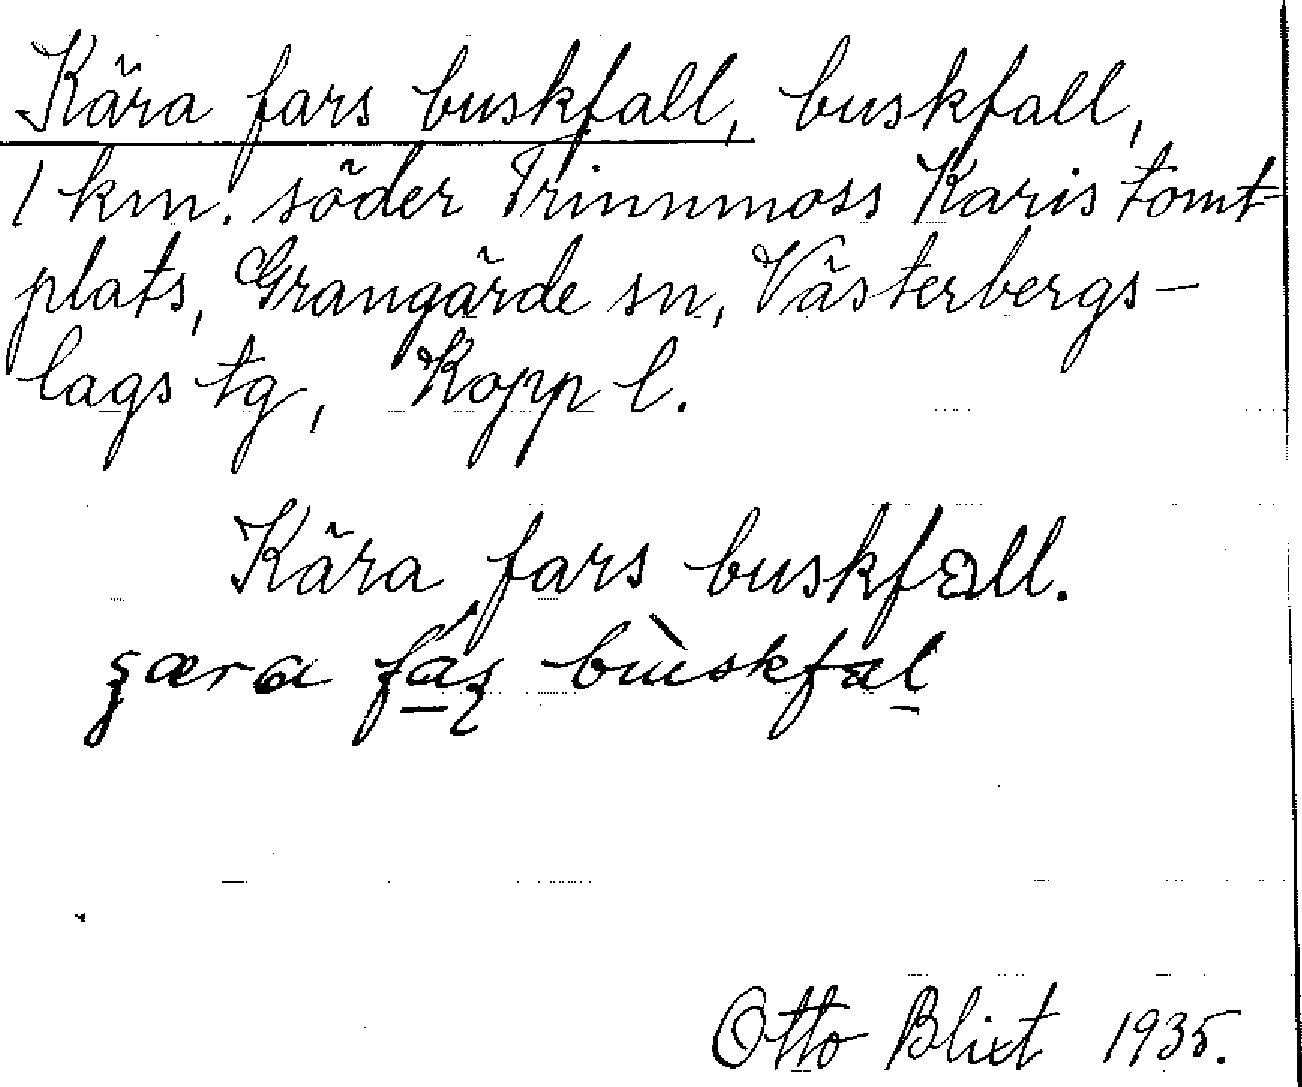 Kära fars buskfall, buskfall,
1 km. söder Trinnmoss Karis tomt-
plats, Grangärde sn, Västerbergs-
lags tg, Kopp l.
Kära fars buskfall.
buskfal
Otto Blixt 1935.